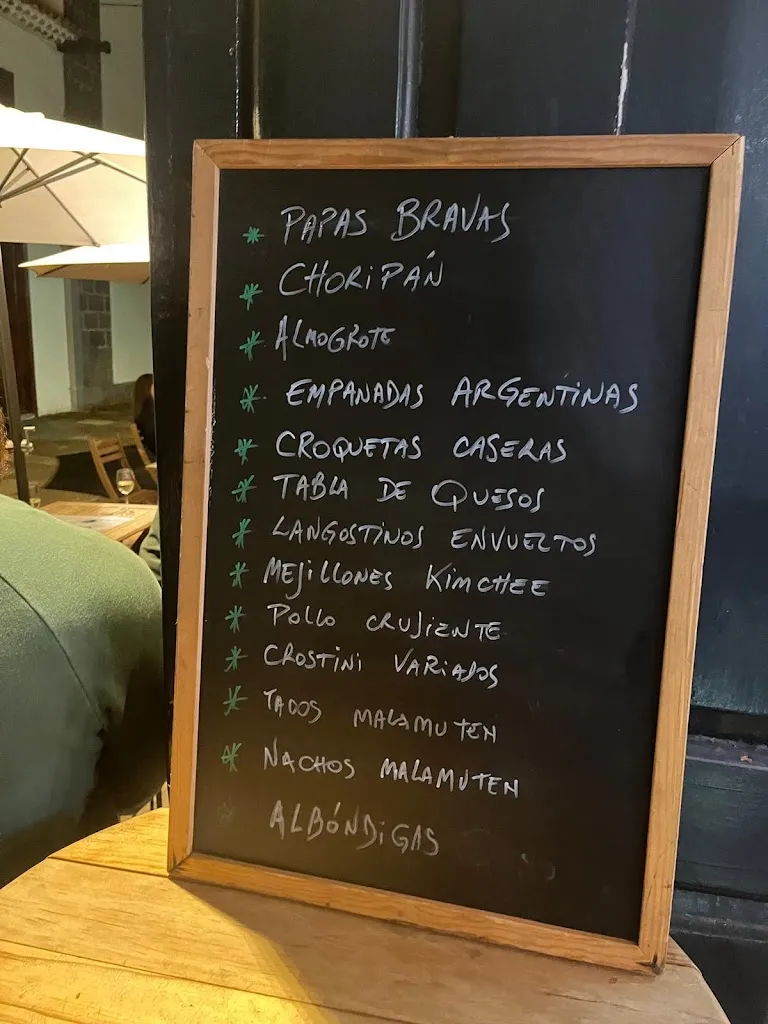 * PAPAS BRAVAS
* CHORIPÁN
* ALMOGROTE
* EMPANADAS ARGENTINAS
* CROQUETAS CASERAS
* TABLA DE QUESOS
* LANGOSTINOS ENVUELTOS
* MEJILLONES KIMCHEE
* POLLO CRUJIENTE
* CROSTINI VARIADOS
* TACOS MALAMUTEN
* NACHOS MALAMUTEN
* ALBÓNDIGAS